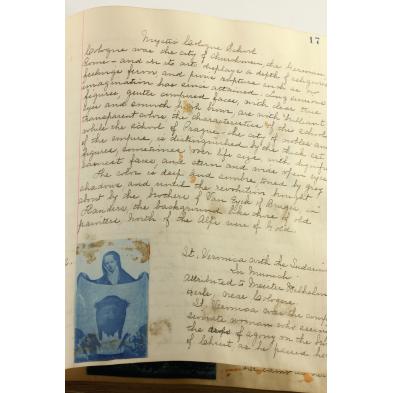 17
Mystic Cologne School
Cologne was the city of Churchmen, the German
Rome - and in its art displays a depth of religious
feeling fervor and pure rapture such as no
imagination has since attained. Long sinuous
figures, gentle faces, with clear blue
eyes and smooth high brow, are with brilliant
transparent color the characteristics of the school
while the school of Prague - the city of nobles and
of the empire is distinguished by the thick set
figures, sometimes over life size, with
earnest faces and stern and wide open eyes
The color is deep and sombre toned by gray
shadows and until the revolution brought
about by the brothers of Van Eyck of Bruges in
Flanders, the background like those of old
painters North of the Alps were of gold.
St. Veronica with the Sudarium
In Munich
attributed to Meister Wilhelm
near Cologne.
St. Veronica was the
woman who seeing
the drops of agony on the
of Christ as he passed her